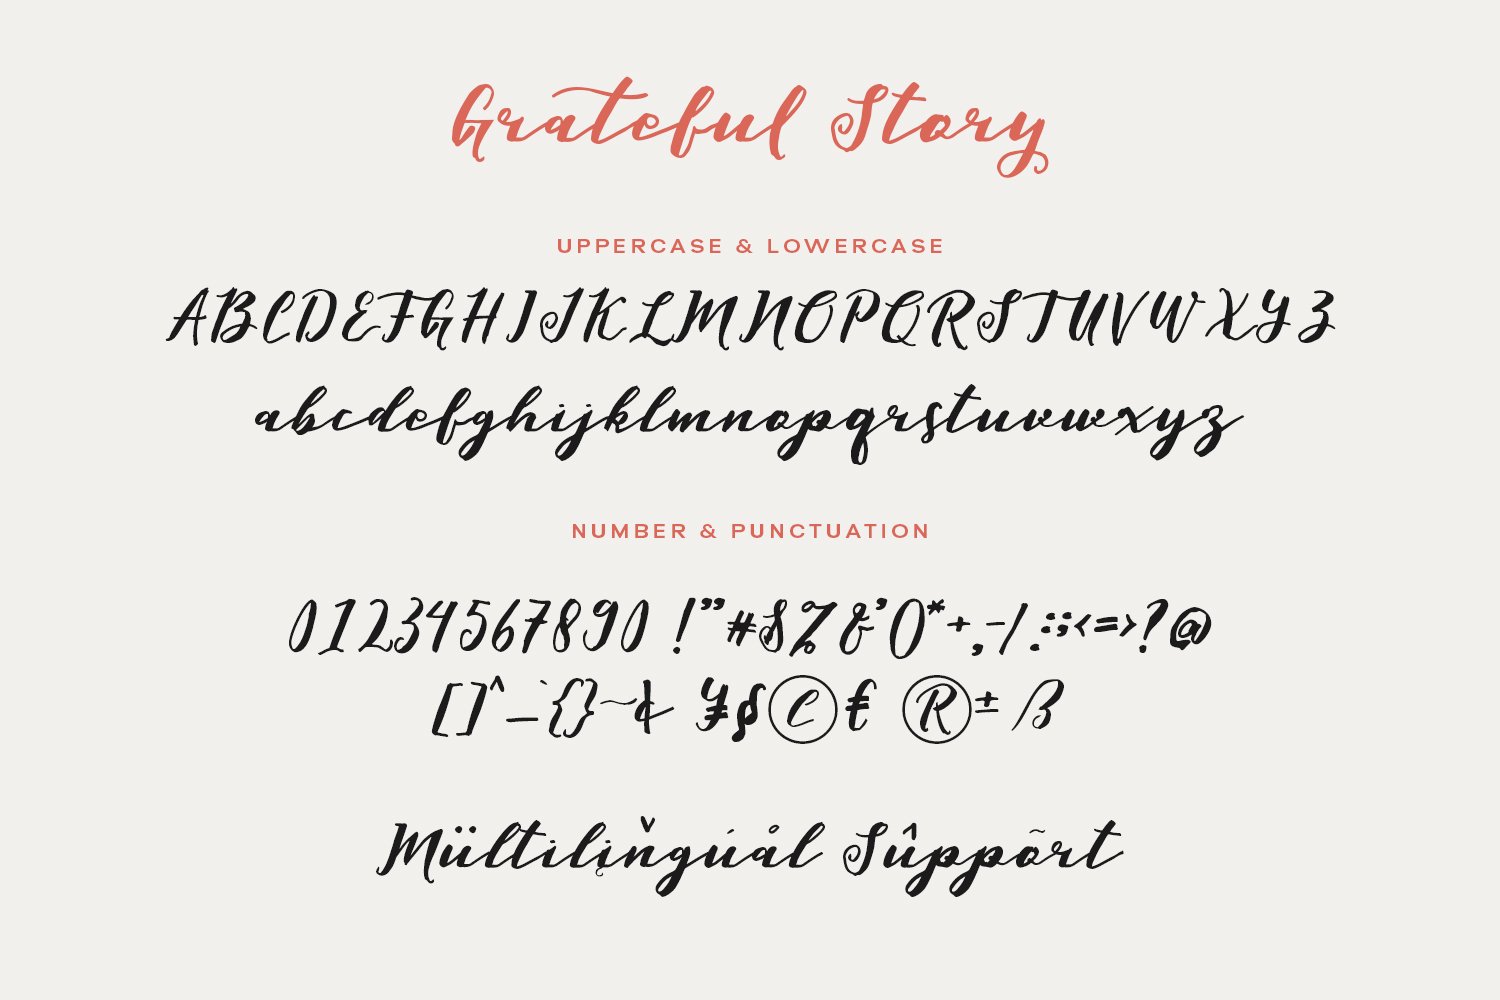 Grateful Story
UPPERCASE & LOWERCASE
ABCDEFGHIJKLMNOPQRSTUVWXYZ
abcdefghijklmnopqrstuvwxyz
NUMBER & PUNCTUATION
01234567890 !"#$%&'()*+,-/.:;<=>?@
[]^_`{}~¢ ¥§©€ ®±ß
Mültilįňgúål Sûppõrt